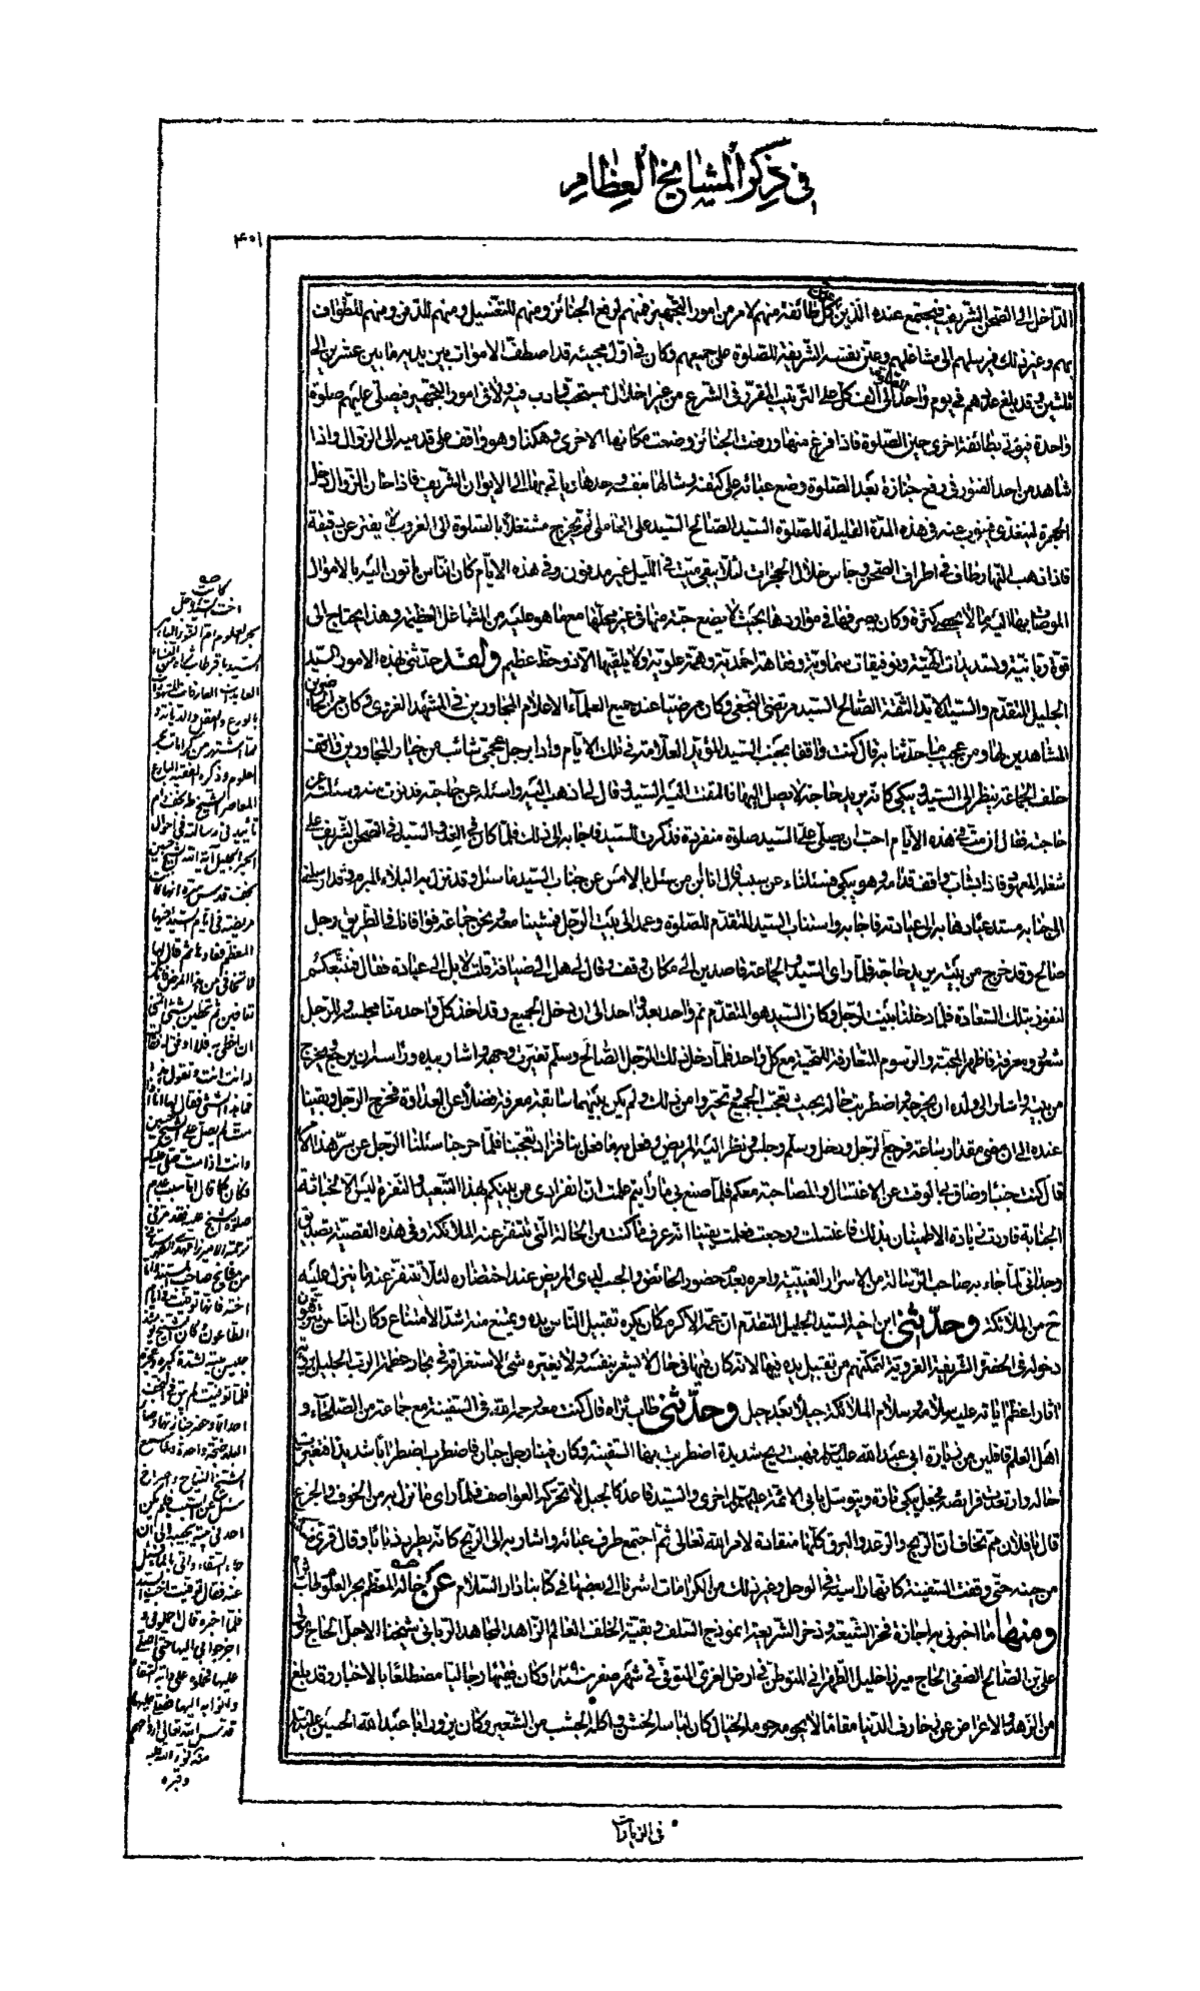 في ذكر المشايخ العظام
٤٠١
الداخل الى الصحن الشريف فيجتمع عنده الذين عين كل طائفة منهم لامر من امور التجهيز فمنهم لرفع الجنائز ومنهم للتغسيل ومنهم للدفن ومنهم للطواف
بهم وغير ذلك فيرسلهم الى مشاغلهم وعين نفسه الشريفة للصلوة على جميعهم وكان في اول مجيئه قد اصطفت الاموات بين يديه ما بين عشرين الى
ثلثين وقد يبلغ عددهم في يوم واحد الى الف كل على الترتيب المقرر في الشرع من غير اخلال بمستحب وادب فيه ولا في امور التجهيز فيصلي عليهم صلوة
واحدة فيؤتى بطائفة اخرى حين الصلوة فاذا فرغ منها ورفعت الجنائز وضعت مكانها الاخرى وهكذا وهو واقف على قدميه الى الزوال واذا
شاهد من احد الفتور في رفع جنازة بعد الصلوة وضع عبائه على كتفه وشالها بنفسه وحدها وياتي بها الى الايوان الشريف فاذا حان الزوال دخل
الحجرة ليتغدى فينوب عنه في هذه المدة القليلة للصلوة السيد الصالح السيد علي العاملي ثم يخرج مشتغلا بالصلوة الى الغروب لا يفتر عن دقيقة
فاذا ذهب النهار طاف في اطراف الصحن وجاس خلال الحجرات لئلا يبقى ميت في الليل غير مدفون وفي هذه الايام كان الناس ياتون اليه بالاموال
الموصى بها اليه بما لا يحصى كثرة وكان يصرفها في مواردها بحيث لا يضع حبة منها في غير محلها مع ما هو عليه من المشاغل العظيمة وهذا يحتاج الى
قوة ربانية وتسديدات الهية وتوفيقات سماوية وفقاهة احمدية وهمة علوية ولا يلقيها الا ذو حظ عظيم ولقد حدثني بهذه الامور السيد
الجليل المتقدم والسيد الايد الثقة الصالح السيد مرتضى النجفي وكان مرضيا عند جميع العلماء الاعلام المجاورين في المشهد الغروي وكان من الحاضرين
المشاهدين لها ومن عجيب ما حدثنا به قال كنت واقفا بجنب السيد المؤيد العلامة في تلك الايام واذا برجل عجمي شائب من خيار المجاورين واقف
خلف الجماعة ينظر الى السيد ويبكي كانه يريد حاجة لا يصل اليها فالتفت اليه السيد وقال لي اذهب اليه واسئله عن حاجته فدنوت منه وسئلته عن
حاجته فقال ان مت في هذه الايام احب ان يصلي علي السيد صلوة منفردة فذكرت للسيد فاجابه الى ذلك فلما كان في الغد والسيد في الصحن الشريف على
شغله المعهود فاذا بشاب واقف قدامه وهو يبكي فسئلناه عن سبب قال انا ابن من سئل بالامس عن جناب السيد ما سئل وقد نزل به البلاء المبرم وقد ارسلني
الى جنابه مستدعيا ذهابه الى عيادته فاجابه واستناب السيد المتقدم للصلوة وعمد الى بيت الرجل فمشينا معه ونحن جماعة فوافانا في الطريق رجل
صالح وقد خرج من بيته يريد حاجة فلما راى السيد والجماعة قاصدين الى مكان وقف وقال لي هل الى ضيافة قلت لا بل الى عيادة فقال فنتبعكم
لنفوز بتلك السعادة فلما دخلنا بيت الرجل وكان السيد هو المتقدم ثم واحد بعد واحد الى ان دخل الجميع وقد اخذ كل واحد منا مجلسه وللرجل
شعور ومعرفة فاظهر المحبة والرسوم المتعارفة للتحية مع كل واحد فلما دخل ذلك الرجل الصالح وسلم تغير وجهه واشار بيده وراسه ان يرجع ويخرج
من بيته واشار الى ولده ان يخرجه واضطرب حاله بحيث تعجب الجميع وتحيروا من ذلك ولم يكن بينهما سابقة معرفة فضلا عن العداوة فخرج الرجل وبقينا
عنده الى ان مضى مقدار ساعة فرجع الرجل ودخل وسلم وجلس ونظر اليه المريض وفعل به ما فعل بنا فزاد تعجبنا فلما خرجنا سئلنا الرجل عن سر هذا الامر
قال كنت جنبا وضاق بي الوقت عن الاغتسال والمصاحبة معكم فلما صنع بي ما رايتم علمت ان انفرادي من بينكم بهذا التبعيد والتنفر ليس الا لخباثة
الجنابة فاردت زيادة الاطمينان بذلك فاغتسلت ورجعت فعلمت يقينا انه عرف ما كنت من الحالة التي يتنفر عند الملائكة وفي هذه القصية تصديق
وجداني لما جاء به صاحب الرسالة من الاسرار الغيبية وامره بعدم حضور الحائض والجنب لدى المريض عند احتضاره لئلا يتنفر عنه ما ينزل عليه
ح من الملائكة وحدثني ابن اخيه السيد الجليل المتقدم ان عمه الاكرم كان يكره تقبيل الناس يده ويمتنع منه اشد الامتناع وكان الناس يترقبون
دخوله في الحضرة الشريفة الغروية لتمكنهم من تقبيل يده فيها لانه كان فيها في حال لا يشعر بنفسه ولا يغيره شئ لاستغراقه في بحار عظمة الرب الجليل برؤية
اثار اعظم اياته عليه سلام الله وسلام الملائكة جيلا بعد جيل وحدثني طاب ثراه قال كنت معه رحمه الله في السفينة مع جماعة من الصلحاء و
اهل العلم قافلين من زيارة ابي عبد الله عليه السلم فهبت ريح شديدة اضطربت بها السفينة وكان فينا رجل جبان فاضطرب اضطرابا شديدا فتغيرت
حاله وارتعدت فرائصه فجعل يبكي تارة ويتوسل بابي الائمة عليهم السلم اخرى والسيد قاعد كالجبل لا تحركه العواصف فلما راى ما نزل به من الخوف والجزع
قال يا فلان مم تخاف ان الريح والرعد والبرق كلها منقادة لامر الله تعالى ثم اجتمع طرف عبائه واشار به الى الريح كانه يطرد ذبابا وقال قري فسكنت
من حينه حتى وقفت السفينة كانها راسية في الوحل وغير ذلك من الكرامات اشرنا الى بعضها في كتابنا دار السلام عن خاله المعظم بحر العلوم طاب ثراه
ومنها ما اخبرني به اجازة فخر الشيعة وذخر الشريعة انموذج السلف وبقية الخلف العالم الزاهد المجاهد الرباني شيخنا الاجل الحاج المولى
علي بن الصالح الصفي الحاج ميرزا خليل الطهراني المتوطن في ارض الغري المتوفى في شهر صفر سنة ١٢٩٠ وكان فقيها رجاليا مضطلعا بالاخبار وقد بلغ
من الزهد والاعراض عن زخارف الدنيا مقاما لا يحوم حومه الخيال كان لباسه الخشن واكله الجشب من الشعير وكان يزور ابا عبد الله الحسين عليه السلم
في الزيارات
كانت
اخت السيد الاجل
بحر العلوم
العابدات العارفات
بالورع والعقل والديانة
العلوم وذكره الفقيه البارع
المعاصر الشيخ طه نجف دام
تاييده في رسالته في احوال
الحبر الجليل آية الله الشيخ حسين
نجف قدس سره انها كانت
مريضة في ايام السيد اخيها
المعظم فعادها ثم قال لها
لا تخافي من هذا المرض فانك
تعافين
وانت اذا مت يصلي عليك
صلوة الشيخ عليه
اخته فانها توفيت في ايام
الطاعون وكان الشيخ
جليس بيته لشدة كبره وعجزه
فلما توفيت لم يبق في النجف
احد الا وحضر جنازتها
فلما اخبره قال احملوني و
اخرجوني اليها حتى اصلي
عليها
واتوا به اليها فصلى عليها
قدس الله تعالى ارواحهم
منه نور الله قلبه
وقبره